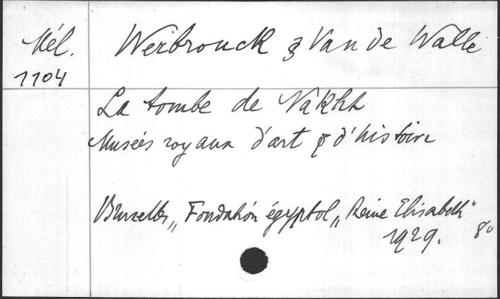 Mél. Weibrouck & Van de Walle
1104
La tombe de Nakht
Musées royaux d'art & d'histoire
Bruxelles, „Fondation égyptol„ Reine Elisabeth"
1929. 8°